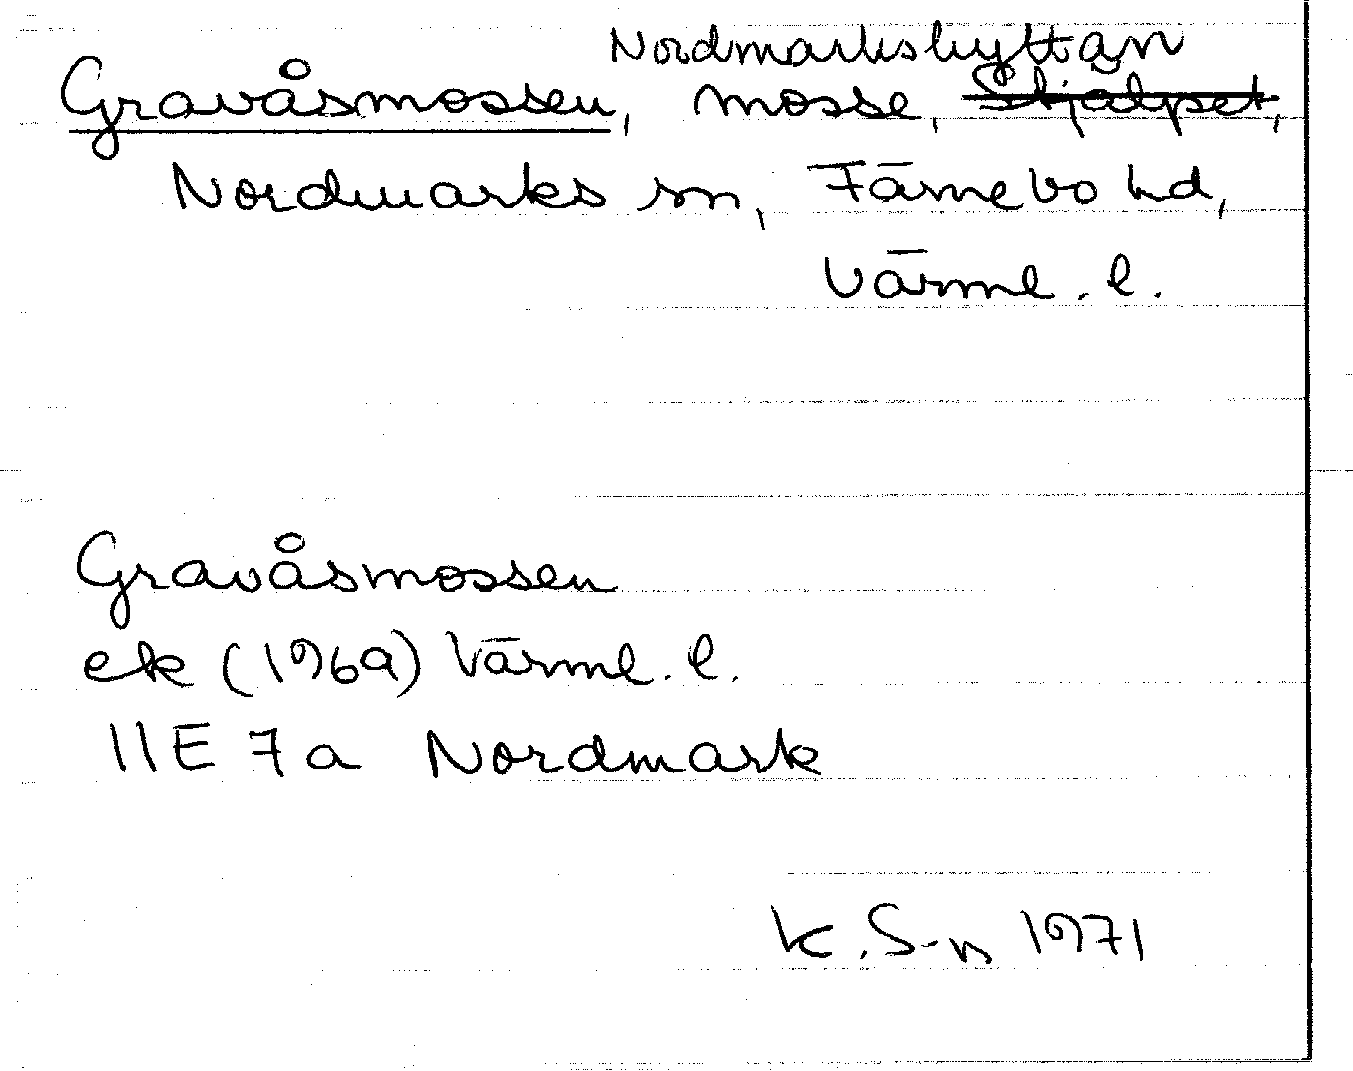 Nordmarkshyttan
Gravåsmossen, mosse, Skjälpet,
Nordmarks sn, Färnebo hd,
Värml. l.
Gravåsmossen
ek (1969) Värml. l.
11E 7a Nordmark
K. S-n 1971